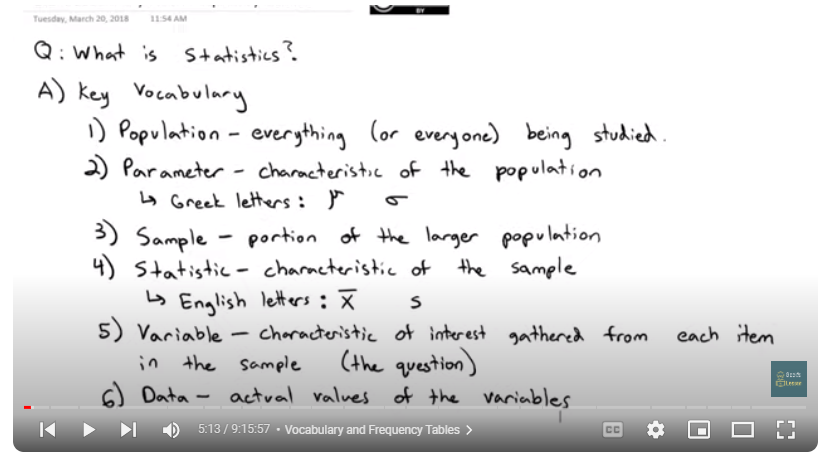 Tuesday, March 20, 2018 11:54 AM
BY
Q: What is Statistics?
A) Key Vocabulary
1) Population - everything (or everyone) being studied.
2) Parameter - characteristic of the population
↳ Greek letters: μ σ
3) Sample - portion of the larger population
4) Statistic - characteristic of the sample
↳ English letters: x̄ s
5) Variable - characteristic of interest gathered from each item
in the sample (the question)
6) Data - actual values of the variables
5:13 / 9:15:57 • Vocabulary and Frequency Tables >
CC